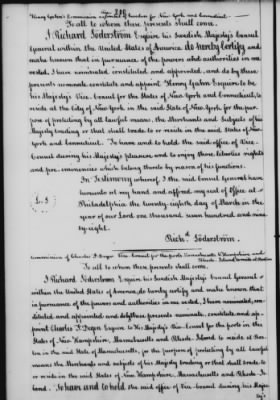 To all to whom these presents shall come.
I Richard Söderström Esquire his Swedish Majesty's Consul
General within the United States of America do hereby certify and
make known that in pursuance of the powers and authorities in me
vested, I have nominated constituted and appointed, and do by these
presents nominate constitute and appoint Henry Gahn Esquire to be
his Majesty's Vice Consul for the States of New York and Connecticut, to
reside at the City of New York in the said State of New York for the pur-
pose of protecting by all lawful means, the Merchants and Subjects of his
Majesty trading or that shall trade to or reside in the said States of New
York and Connecticut. To have and to hold the said office of Vice-
Consul during his Majesty's pleasure and to enjoy those liberties rights
and pre-eminencies which belong thereto by reason of his functions.
In Testimony whereof, I the said Consul General have
hereunto set my hand and affixed my seal of Office at
L.S.
Philadelphia the twenty-eighth day of March in the
year of our Lord one thousand seven hundred and nine-
ty-eight.
Richd. Söderström.
To all to whom these presents shall come.
I Richard Söderström Esquire his Swedish Majesty's Consul General
within the United States of America, do hereby certify and make known that
in pursuance of the powers and authorities in me vested, I have nominated, con-
stituted and appointed and do by these presents nominate, constitute and ap-
point Charles F. Degen Esquire to be his Majesty's Vice-Consul for the ports in the
States of New-Hampshire, Massachusetts and Rhode-Island to reside at Bos-
ton in the said State of Massachusetts, for the purpose of protecting by all lawful
means the Merchants and Subjects of his Majesty trading or that shall trade to
or reside in the said States of New Hampshire, Massachusetts and Rhode Is-
land. To have and to hold the said office of Vice-Consul during his Majes-